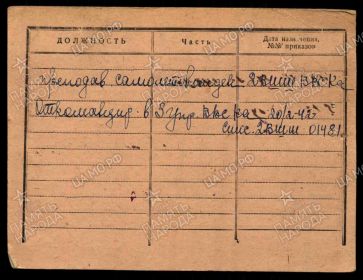 ДОЛЖНОСТЬ Часть Дата назначения, №№ приказов
преподав. самолетовожден. 2 ВШШ ВВС КА
Откомандир. в 5 упр. ВВС КА 20/2-42
спис. 2 ВШШ 01481.
ЦАМО.РФ
ПАМЯТЬ НАРОДА